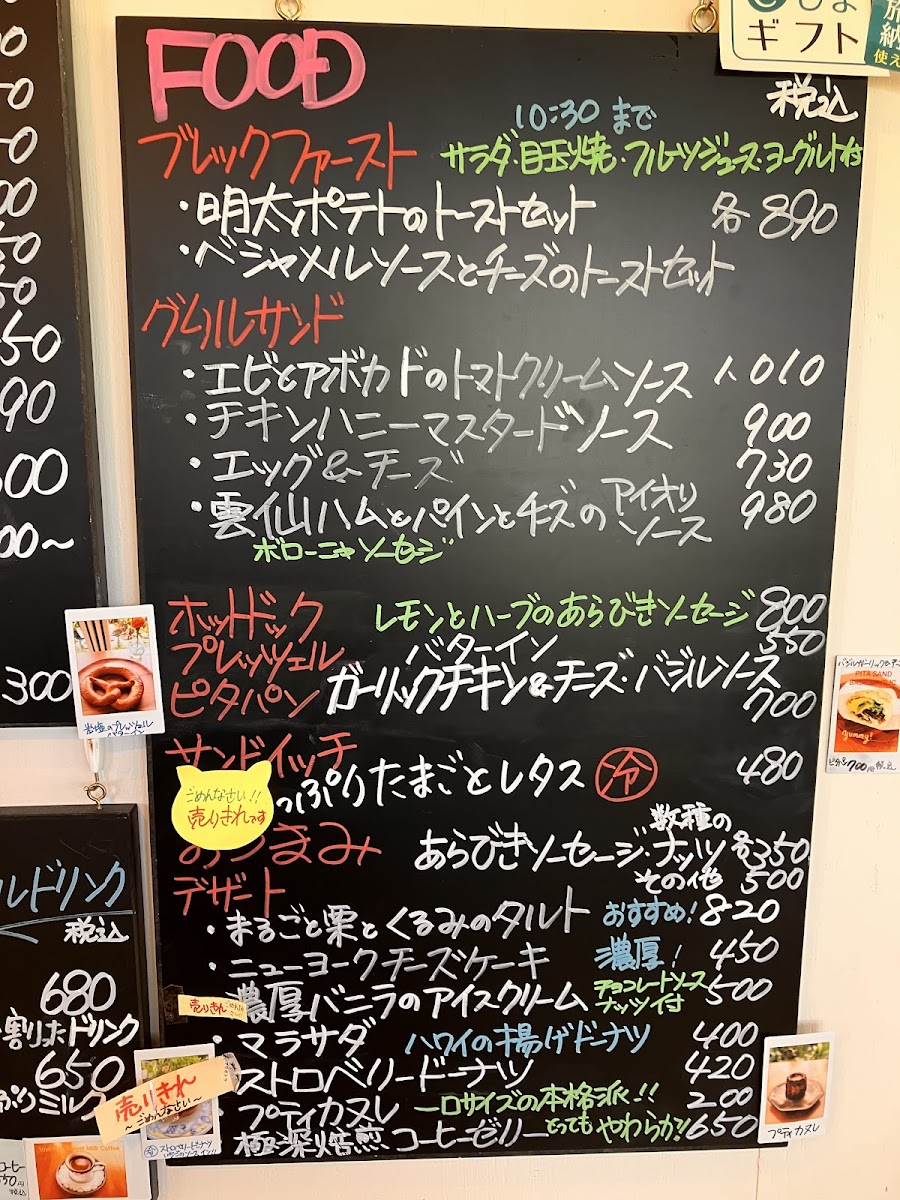 FOOD
税込
10:30 まで
ブレックファースト サラダ・目玉焼・フルーツジュース・ヨーグルト付
・明太ポテトのトーストセット 各890
・ベシャメルソースとチーズのトーストセット
グリルサンド
・エビとアボカドのトマトクリームソース 1,010
・チキンハニーマスタードソース 900
・エッグ&チーズ 730
・雲仙ハムとパインとチーズのアイオリソース 980
ボローニャソーセージ
ホットドック レモンとハーブのあらびきソーセージ 800
プレッツェル バターイン 550
ピタパン ガーリックチキン&チーズ・バジルソース 700
サンドイッチ
っぷりたまごとレタス 冷 480
ごめんなさい!!
売りきれです
おつまみ あらびきソーセージ・ナッツ 各350
数種の
その他 500
デザート
・まるごと栗とくるみのタルト おすすめ! 820
・ニューヨークチーズケーキ 濃厚! 450
濃厚バニラのアイスクリーム チョコレートソース ナッツ付 500
・マラサダ ハワイの揚げドーナツ 400
ストロベリードーナツ 420
・プティカヌレ 一口サイズの本格派!! 200
極深焙煎コーヒーゼリー とってもやわらか! 650
売りきれ
売りきれ
~ごめんなさい~
プティカヌレ
PITA SAND
yummy!
ピタパン700円税込
ギフト
50
90
300
ルドリンク
税込
680
割りホドリンク
650
ミルク
コーヒー